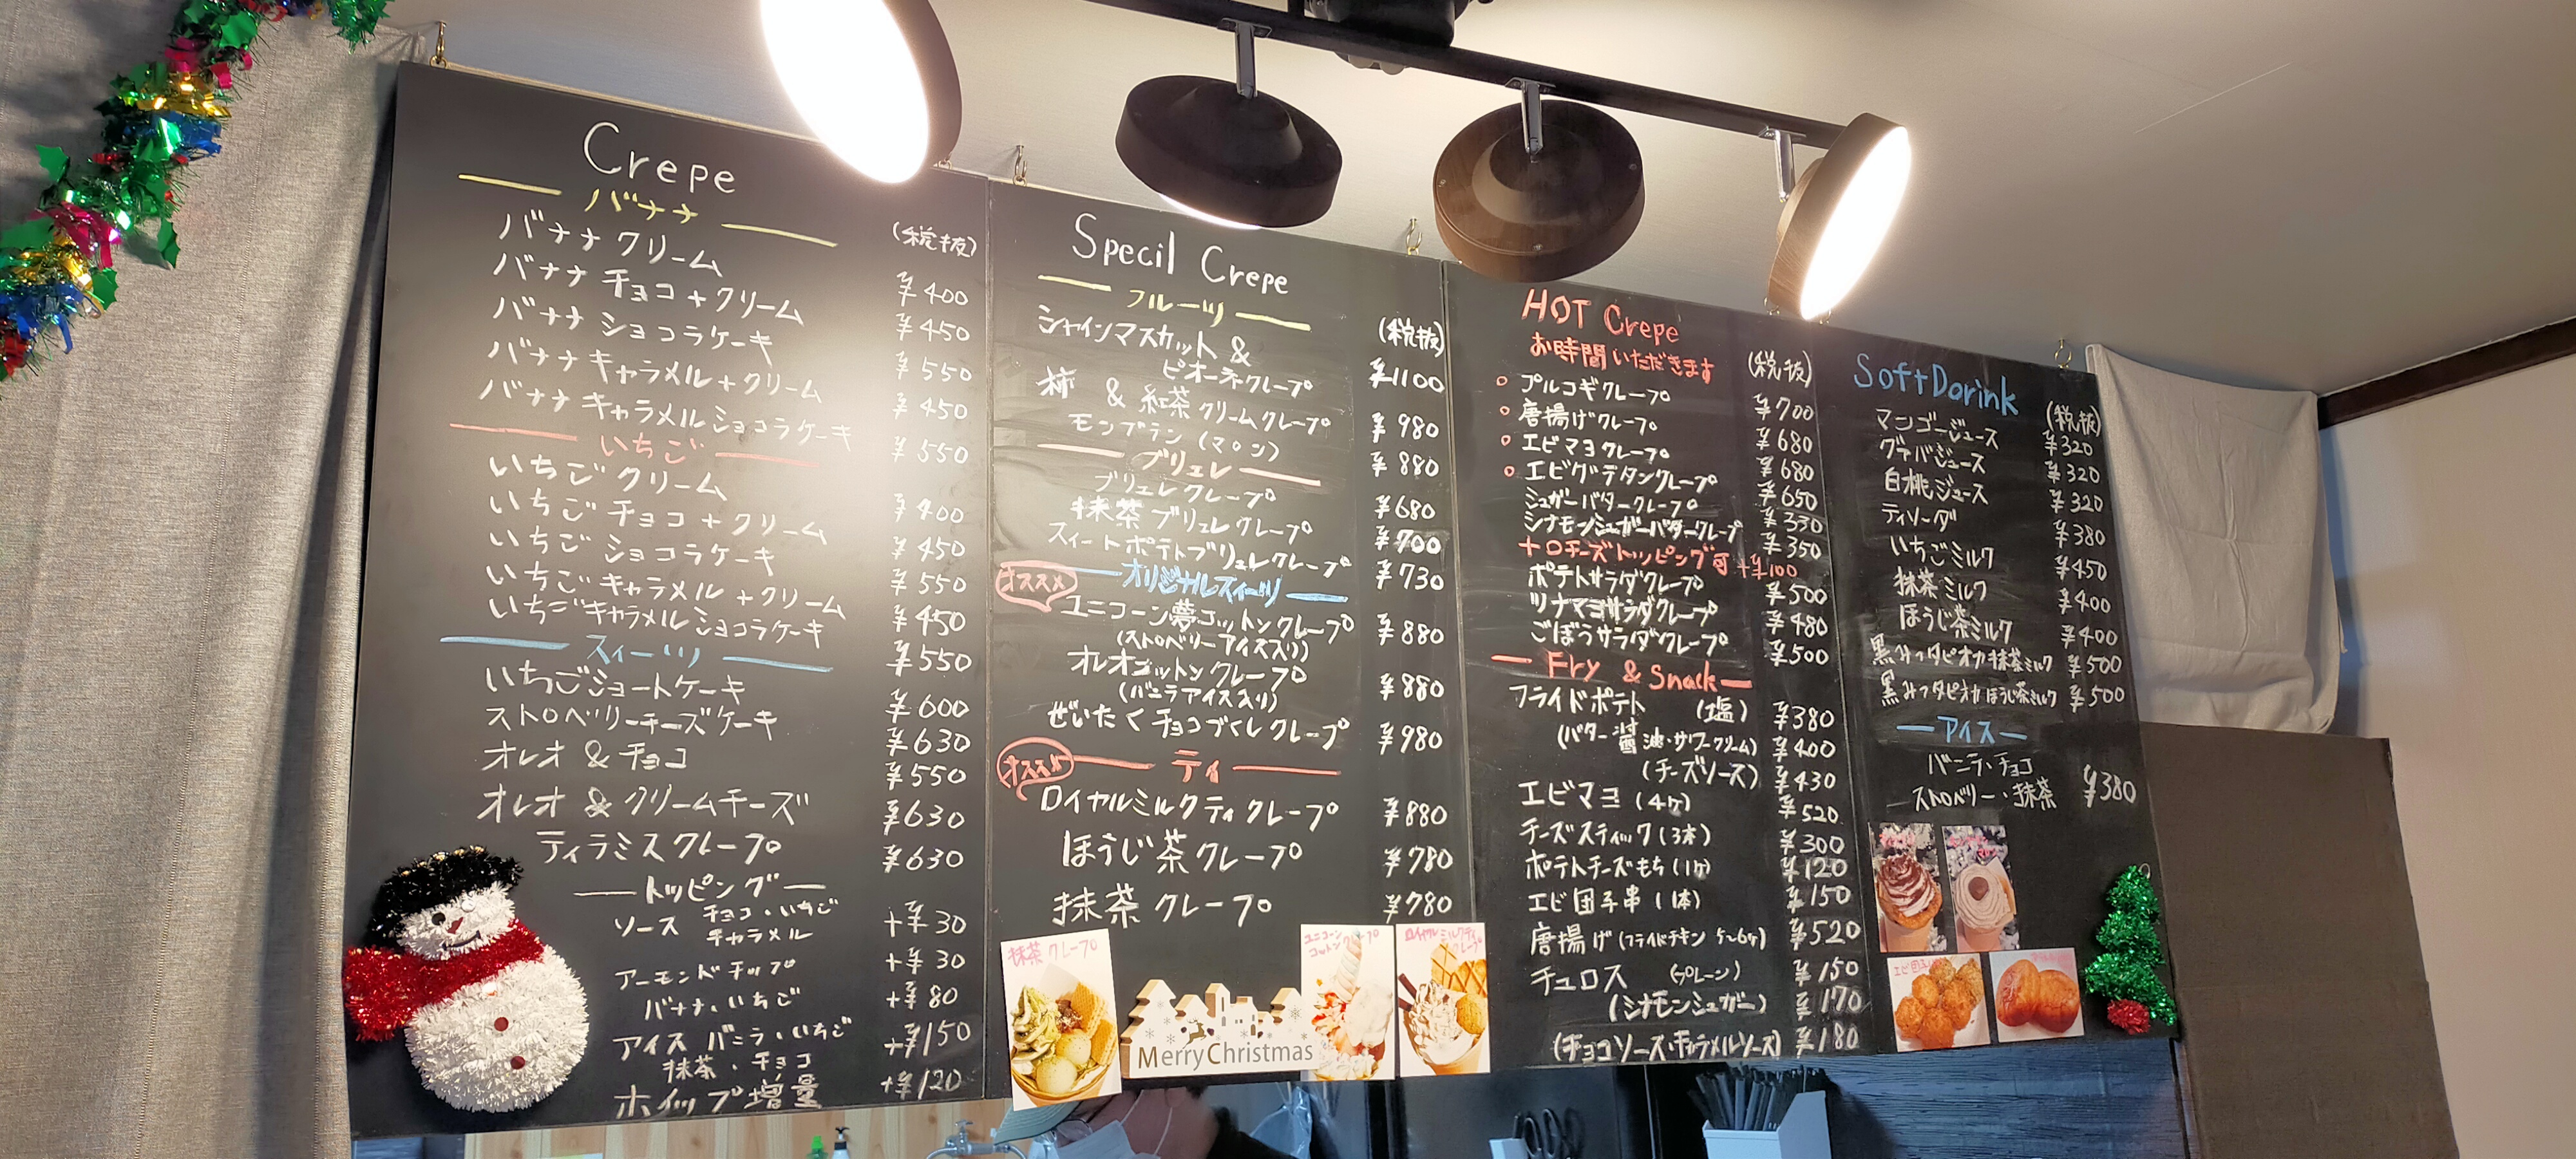 Crepe
バナナ
(税抜)
バナナクリーム ¥400
バナナチョコ+クリーム ¥450
バナナショコラケーキ ¥550
バナナキャラメル+クリーム ¥450
バナナキャラメルショコラケーキ ¥550
いちご
いちごクリーム ¥400
いちごチョコ+クリーム ¥450
いちごショコラケーキ ¥550
いちごキャラメル+クリーム ¥450
いちごキャラメルショコラケーキ ¥550
スィーツ
いちごショートケーキ ¥600
ストロベリーチーズケーキ ¥630
オレオ&チョコ ¥550
オレオ&クリームチーズ ¥630
ティラミスクレープ ¥630
トッピング
ソース チョコ・いちご
キャラメル +¥30
アーモンドチップ +¥30
バナナ・いちご +¥80
アイス バニラ・いちご +¥150
抹茶・チョコ
ホイップ増量 +¥120
Specil Crepe
フルーツ
(税抜)
シャインマスカット&
ピオーネクレープ ¥1100
柿&紅茶クリームクレープ ¥980
モンブラン(マロン) ¥880
ブリュレ
ブリュレクレープ ¥680
抹茶ブリュレクレープ ¥700
スィートポテトブリュレクレープ ¥730
オススメ オリジナルスィーツ
ユニコーン夢コットンクレープ ¥880
(ストロベリーアイス入り)
オレオコットンクレープ ¥880
(バニラアイス入り)
ぜいたくチョコづくしクレープ ¥980
オススメ ティ
ロイヤルミルクティクレープ ¥880
ほうじ茶クレープ ¥780
抹茶クレープ ¥780
抹茶クレープ
MerryChristmas
ユニコーン
コットンクレープ
ロイヤルミルクティ
クレープ
HOT Crepe
お時間いただきます (税抜)
○プルコギクレープ ¥700
○唐揚げクレープ ¥680
○エビマヨクレープ ¥680
○エビグラタンクレープ ¥650
シュガーバタークレープ ¥330
シナモンシュガーバタークレープ ¥350
+ロチーズトッピング可+¥100
ポテトサラダクレープ ¥500
ツナマヨサラダクレープ ¥480
ごぼうサラダクレープ ¥500
Fry & Snack
フライドポテト (塩) ¥380
(バター醤油・サワークリーム) ¥400
(チーズソース) ¥430
エビマヨ(4ヶ) ¥520
チーズスティック(3本) ¥300
ポテトチーズもち(1ヶ) ¥120
エビ団子串(1本) ¥150
唐揚げ(フライドチキン 5~6ヶ) ¥520
チュロス (プレーン) ¥150
(シナモンシュガー) ¥170
(チョコソース・キャラメルソース) ¥180
SoftDorink
(税抜)
マンゴージュース ¥320
グァバジュース ¥320
白桃ジュース ¥320
ティソーダ ¥380
いちごミルク ¥450
抹茶ミルク ¥400
ほうじ茶ミルク ¥400
黒みつタピオカ抹茶ミルク ¥500
黒みつタピオカほうじ茶ミルク ¥500
アイス
バニラ・チョコ
ストロベリー・抹茶 ¥380
エビ団子